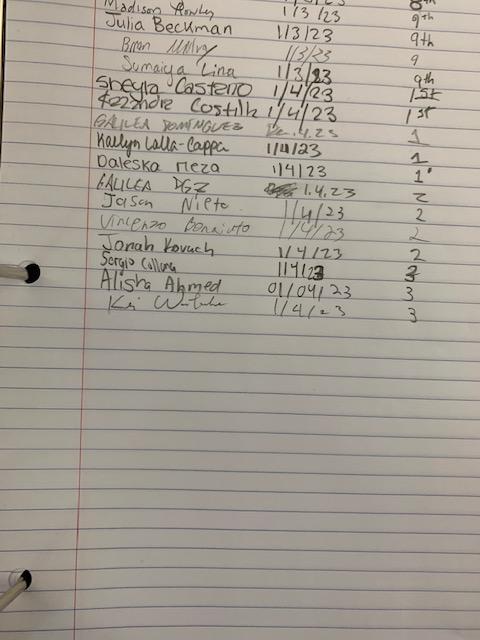 Madison Rowley 1/3/23 9th
Julia Beckman 1/3/23 9th
Brian 1/3/23 9
Sumaiya Lina 1/3/23 9th
Sheyla Casteno 1/4/23 1st
Costilla 1/4/23 1st
GALILEA DOMINGUEZ .4.23 1
Kaitlyn Lalla-Cappa 1/4/23 1
Daleska Meza 1/4/23 1
GALILEA DGZ 1.4.23 2
Jaison Nieto 1/4/23 2
Vincenzo Bonaiuto 1/4/23 2
Jonah Kovach 1/4/23 2
Sergio 1/4/23 3
Alisha Ahmed 01/04/23 3
Kai 1/4/23 3